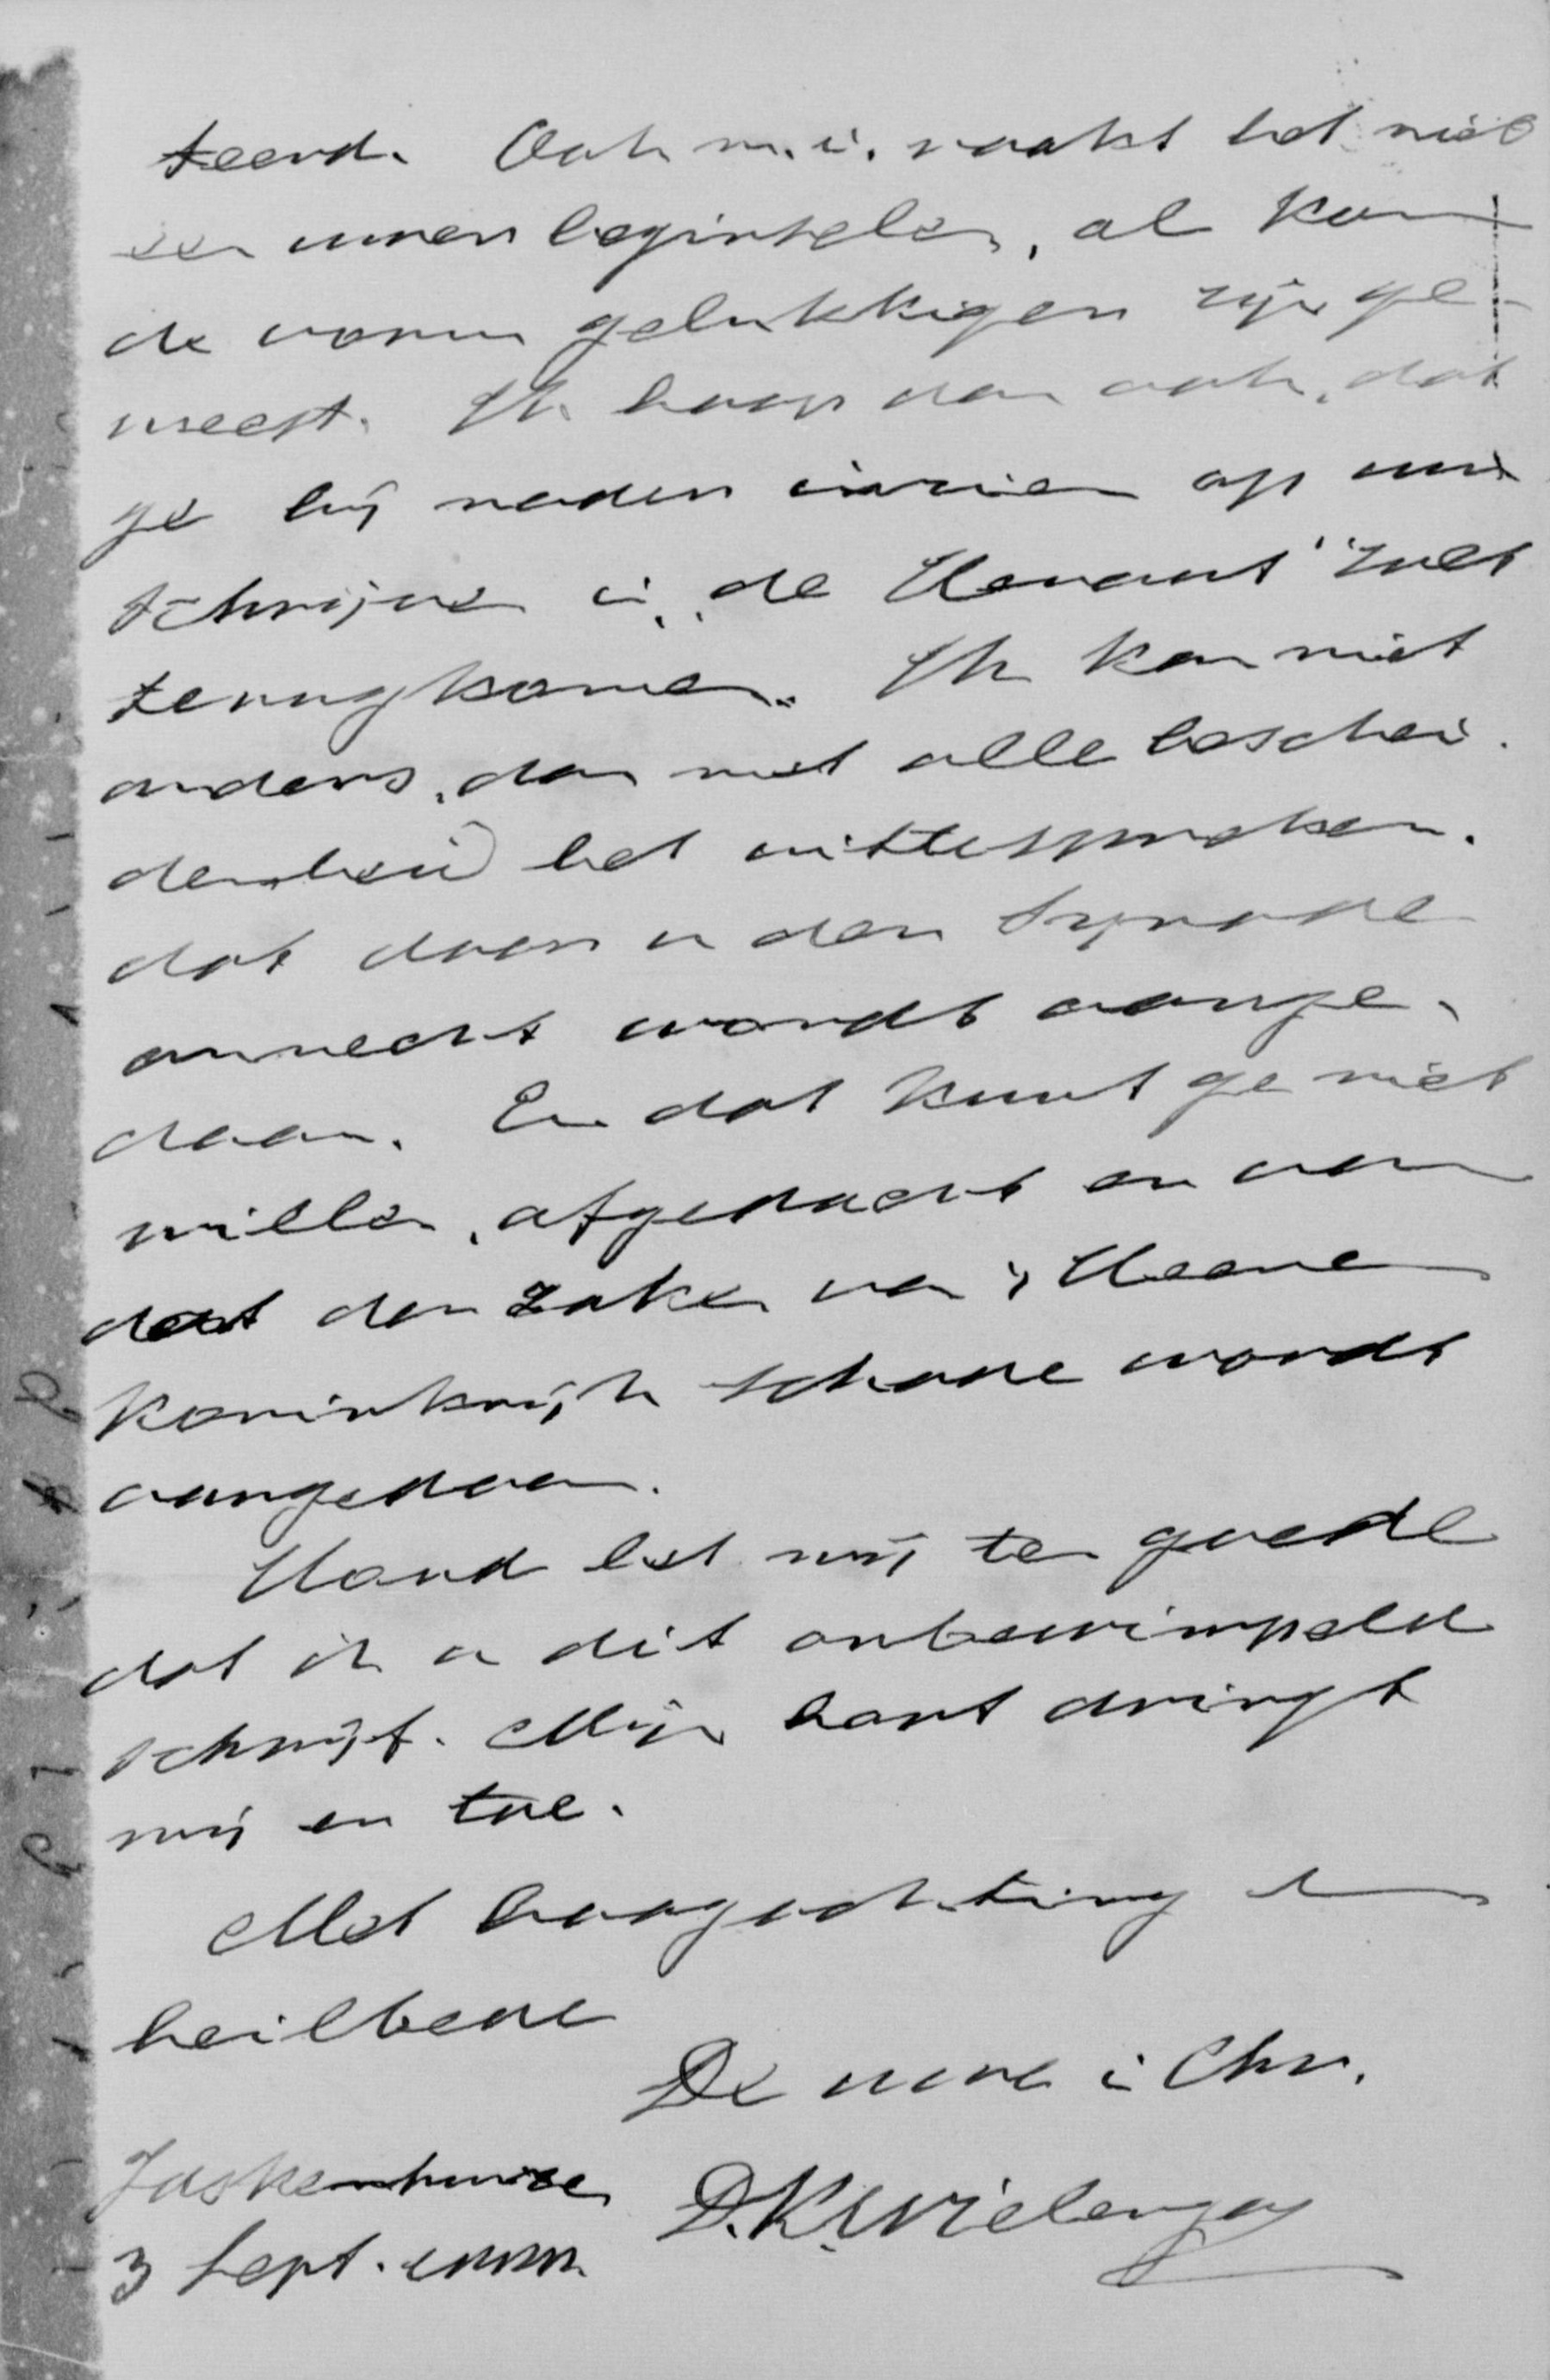 teerd. Ook m.i. raakt het niet
uwen beginselen, al kon
de vorm gelukkiger zijn ge-
weest. Ik hoop dan ook, dat
ge bij nader inzien op uw
schrijven in "de Heraut" zult
terugkomen. Ik kan niet
anders, dan met alle beschei-
denheid het uittespreken.
dat door u den Synode
onrecht wordt aange-
daan. En dat kunt ge niet
willen, afgedacht er van
dat der zake van 's Heeren
koninkrijk schade wordt
aangedaan.
Houd het mij ten goede
dat ik u dit onbewimpeld
schrijf. Mijn hart dringt
mij er toe.
Met hoogachting en
heilbede
De uwe in Chr.
D.K. Wielenga
3 Sept.